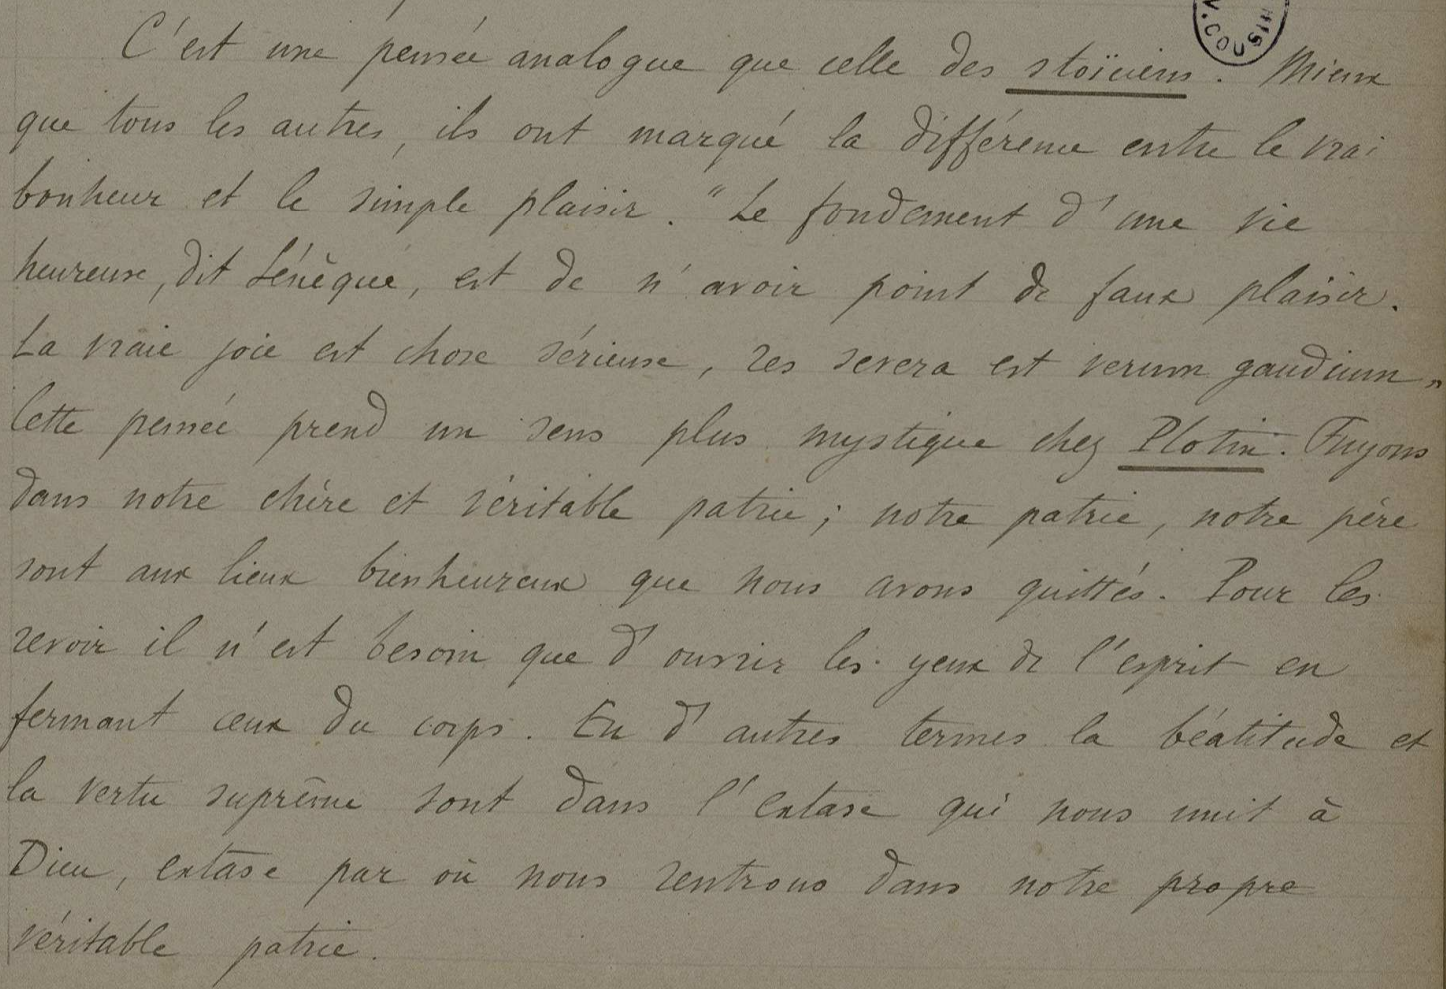 C'est une pensée analogue que celle des stoïciens. Mieux
que tous les autres, ils ont marqué la différence entre le vrai
bonheur et le simple plaisir. "Le fondement d'une vie
heureuse, dit Sénèque, est de n'avoir point de faux plaisir.
La vraie joie est chose sérieuse, res severa est verum gaudium"
Cette pensée prend un sens plus mystique chez Plotin. Fuyons
dans notre chère et véritable patrie ; notre patrie, notre père
sont aux lieux bienheureux que nous avons quittés. Pour les
revoir il n'est besoin que d'ouvrir les yeux de l'esprit en
fermant ceux du corps. En d'autres termes la béatitude et
la vertu suprême sont dans l'extase qui nous unit à
Dieu, extase par où nous rentrons dans notre propre
véritable patrie.
V.COU
HIS